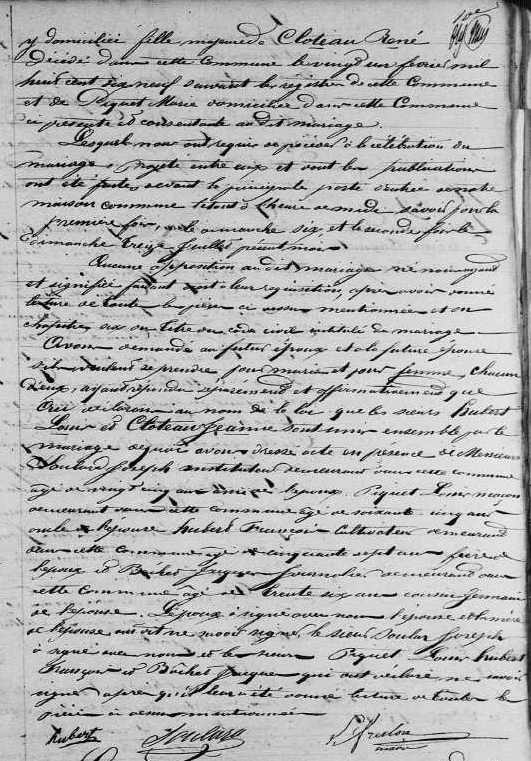 y domiciliée fille majeure de Cloteau René
décédé dans cette Commune le vingt un février mil
huit cent dix neuf suivant les registres de cette Commune
et de Piquet Marie domiciliée dans cette Commune
ci présente et consentante au dit mariage.
Lesquels nous ont requis de procéder à la célébration du
mariage projeté entre eux et dont les publications
ont été faites devant la principale porte d'entrée de notre
maison commune à l'heure de midi savoir pour la
première fois, le dimanche six et la seconde fois le
dimanche treize Juillet présent mois
Aucune opposition au dit mariage ne nous ayant
été signifiée faisant droit à leur requisition, après avoir donné
lecture de toutes les pièces ci dessus mentionnées et du
chapitre six du titre du code civil intitulé du mariage
Avons demandé au futur époux et à la future épouse
s'ils veulent se prendre pour mari et pour femme, chacun
d'eux, ayant répondu séparément et affirmativement
déclarons au nom de la loi que les sieurs Hubert
Louis et Cloteau Jeanne sont unis ensemble par le
mariage de quoi avons dressé acte en présence de Messieurs
Joseph instituteur demeurant dans cette commune
agé de vingt cinq ans ami de l'époux. Piquet Louis maçon
demeurant dans cette commune agé de soixante cinq ans
oncle de l'épouse Hubert François Cultivateur demeurand
dans cette commune agé de cinquante sept ans père de
l'époux et Jacques Journalier demeurand dans
cette commune agé de trente six ans cousin germain
de l'épouse. L'époux a signé avec nous l'épouse et la mère
de l'épouse ont dit ne savoir signer le sieur Joseph
a signé avec nous et les sieurs Piquet Louis Hubert
François et Jacques qui ont déclaré ne savoir
signer après qu'il leur a été donné lecture de toutes les
pièces ci dessus mentionnées
Hubert
maire